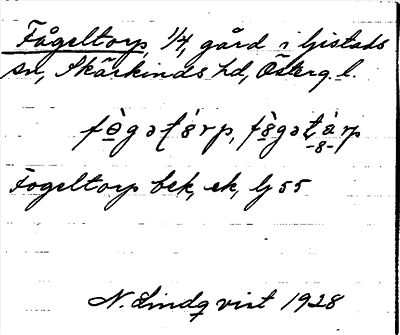 Fågeltorp, 1/4, gård i Gistads
sn, Skärkinds hd, Österg. l.
fò̱gəʈórp, fò̱gəʈàrp
-8-
Fogeltorp bek, ek, Lj 55
N. Lindqvist 1928